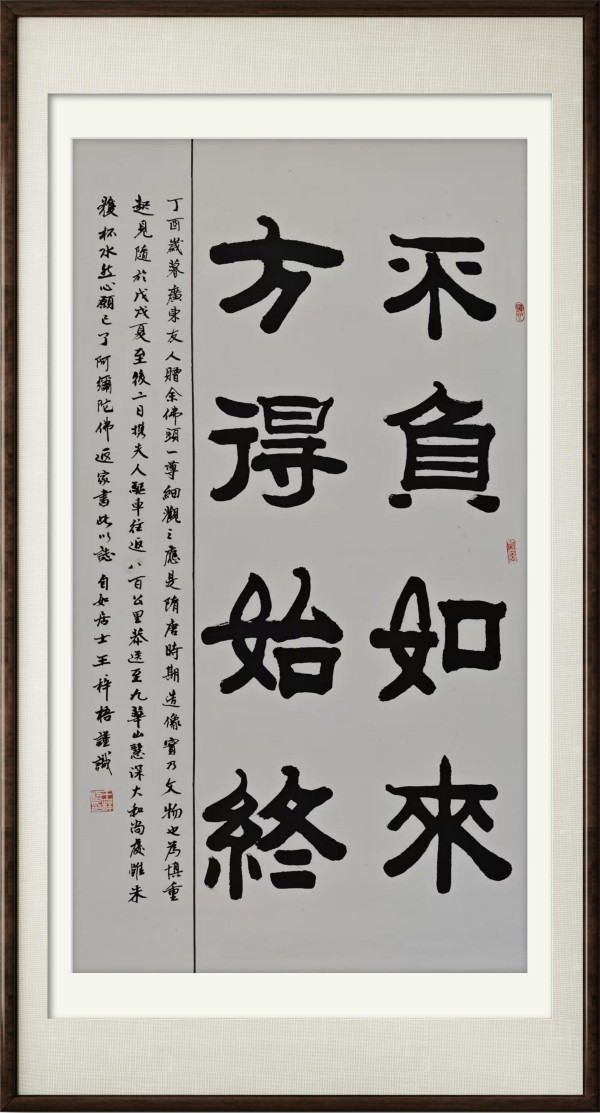 不負如來
方得始終
丁酉歲暮廣東友人贈余佛頭一尊細觀之應是隋唐時期造像實乃文物也為慎重
起見隨於戊戌夏至後二日携夫人驅車往返八百公里恭送至九華山慧深大和尚處雖米
襪杯水然心願已了阿彌陀佛返家書此以誌自如居士王梓梧謹識